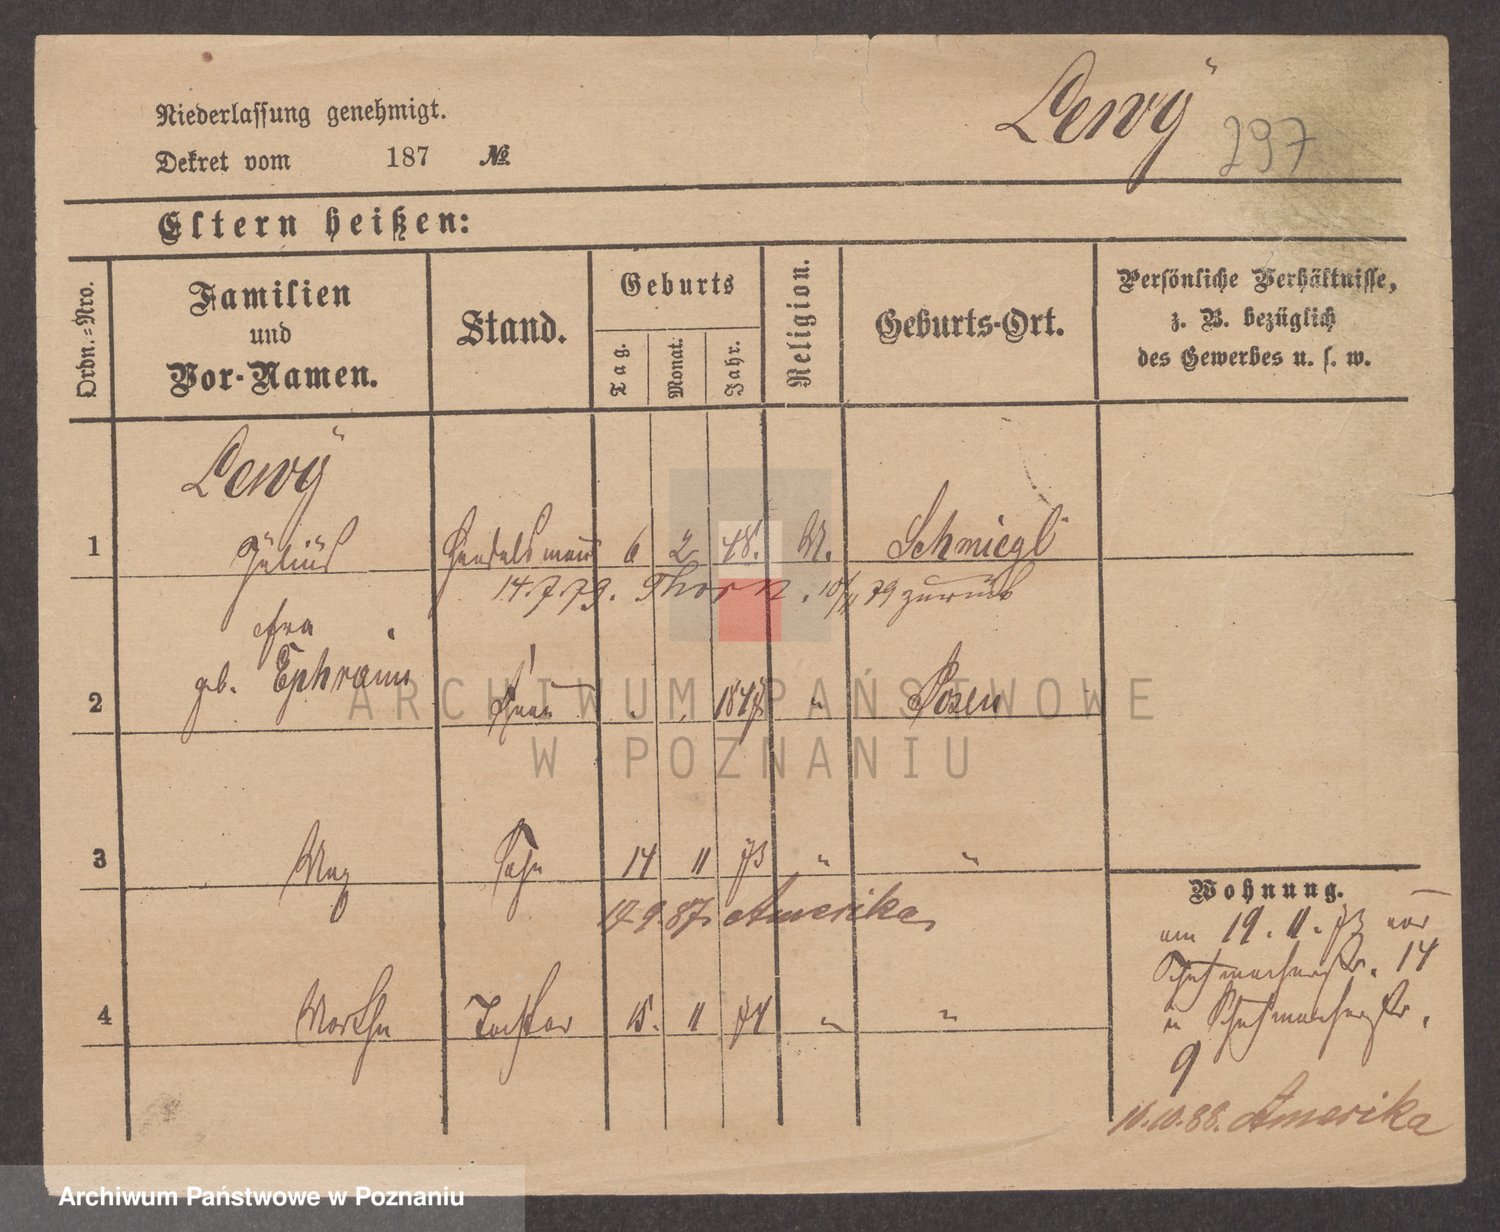 Lewÿ 297
Niederlassung genehmigt.
Dekret vom 187 №
Eltern heißen:
Ordn.-Nro.
Familien
und
Vor-Namen.
Stand.
Geburts
Tag.
Monat.
Jahr.
Religion.
Geburts-Ort.
Persönliche Verhältnisse,
z. B. bezüglich
des Gewerbes u. s. w.
Lewÿ
1 Julius Handelsmann 6 2 48. M. Schmiegl
14.7.79. Thorn. 10/11 79 zurück
geb. Ephraim
2 Frau 1847 " Posen
3 Max Sohn 14 11 73 " "
17.9.87. Amerika
4 Martha Tochter 15. 11 74 " "
Wohnung.
am 19. 11. 73 von
Schuhmacherstr. 14
n Schuhmacherstr.
9
10.10.88. Amerika
ARCHIWUM PAŃSTWOWE
W POZNANIU
Archiwum Państwowe w Poznaniu